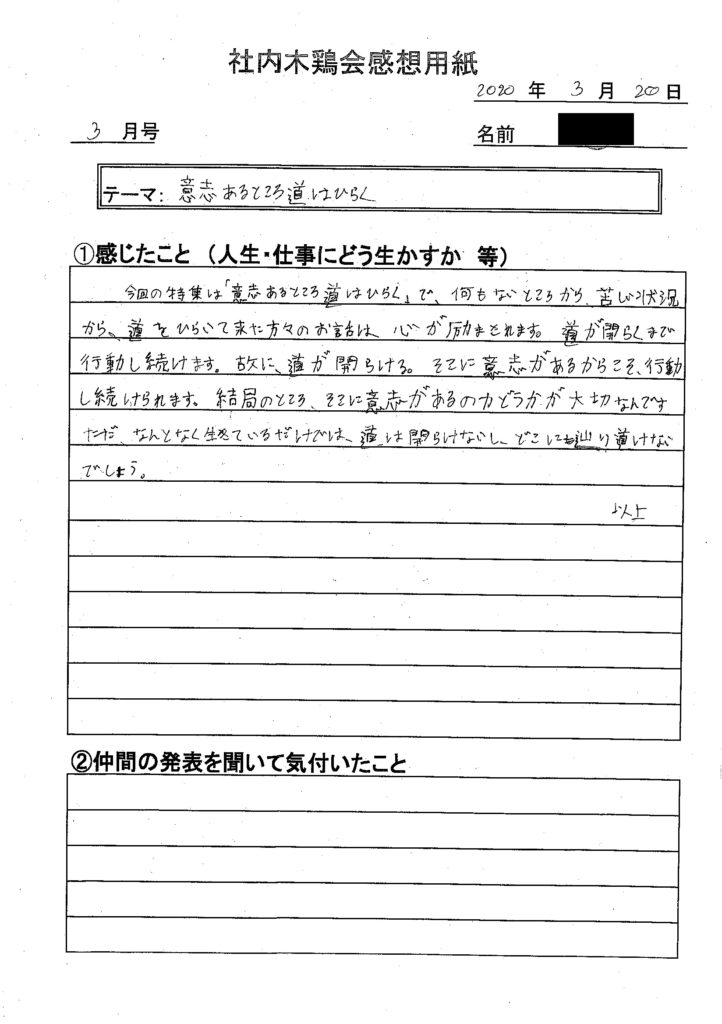 社内木鶏会感想用紙
2020 年 3 月 20 日
3 月号
名前
テーマ: 意志あるところ道はひらく
①感じたこと (人生・仕事にどう生かすか 等)
今回の特集は「意志あるところ道はひらく」で、何もないところから、苦しい状況
から、道をひらいて来た方々のお話は、心が励まされます。道が開らくまで
行動し続けます。故に、道が開らける。そこに意志があるからこそ、行動
し続けられます。結局のところ、そこに意志があるのかどうかが大切なんです
ただ、なんとなく生きているだけでは、道は開らけないし、どこにも辿り着けない
でしょう。
以上
②仲間の発表を聞いて気付いたこと